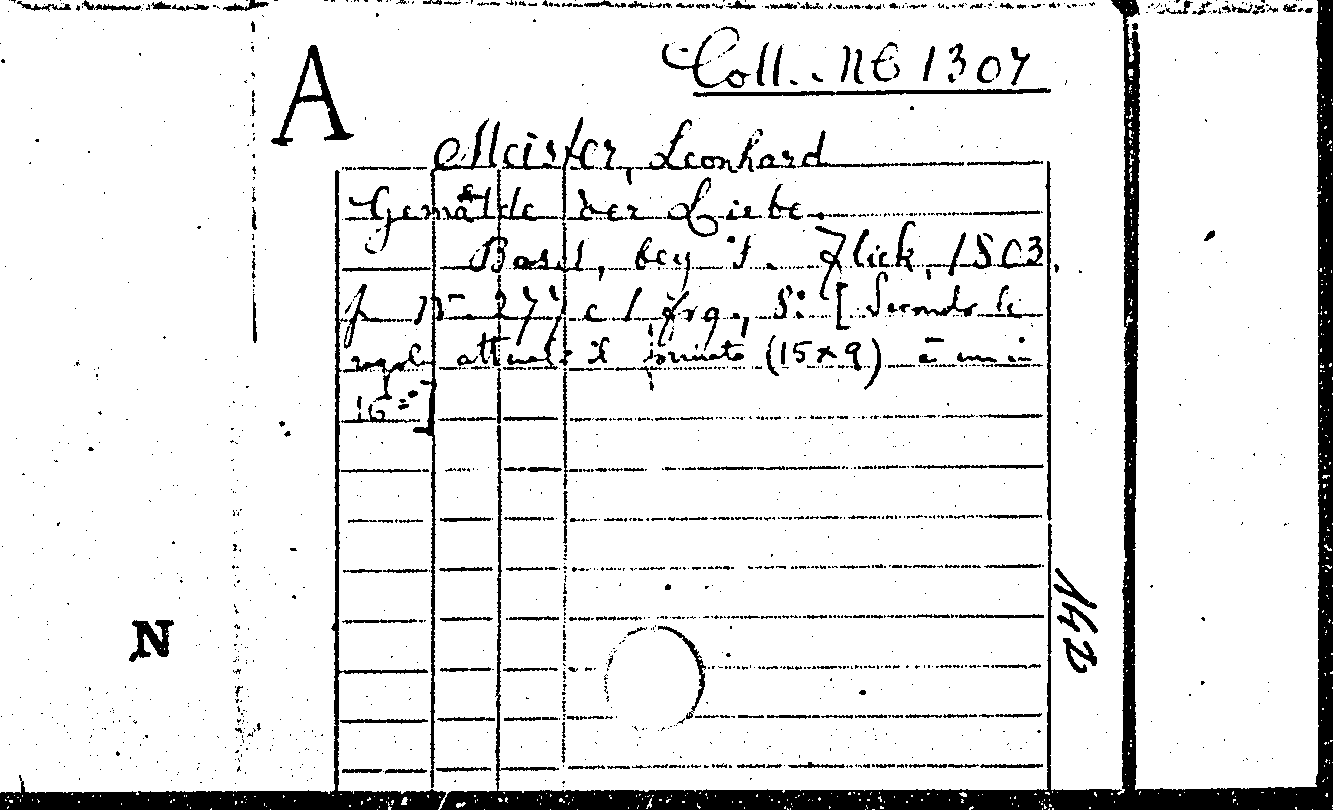 A
Coll. NC 1307
Meister, Leonhard
Gemälde der Liebe.
Basel, bey S. Flick, 1803.
p. 277 c 1 frg., 8: [Secondo le
regole attuali il formato (15 x 9) è un in
16°]
N
142